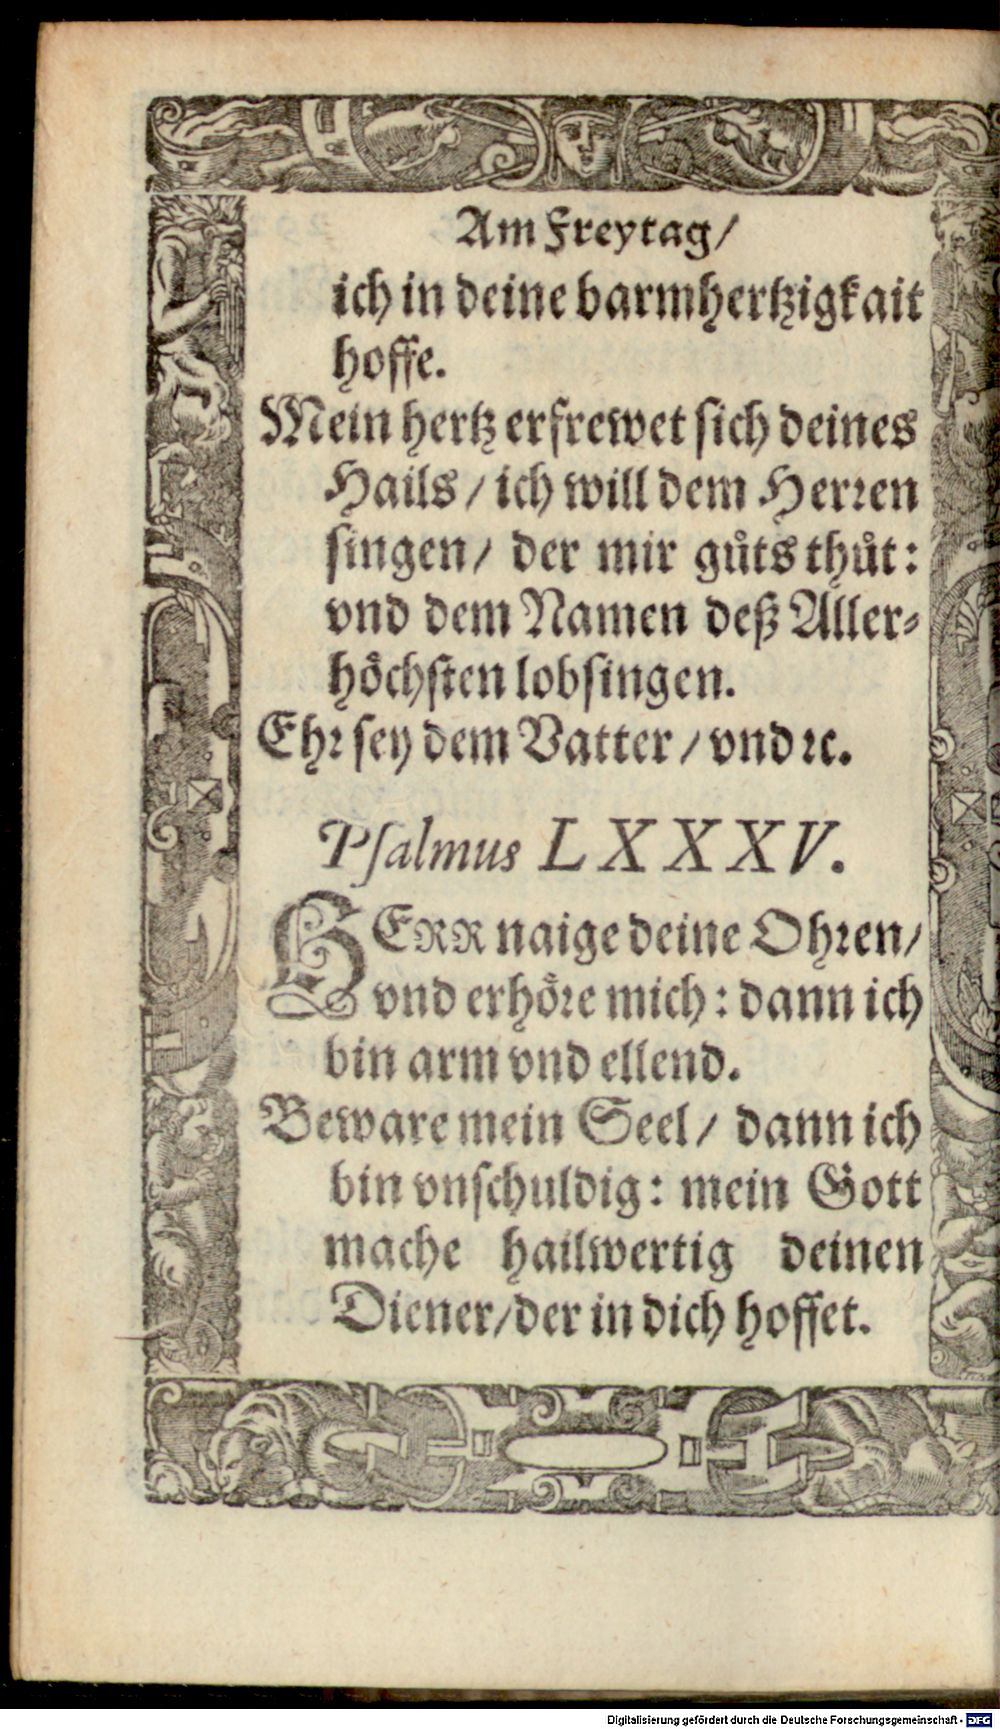 Am Freytag/
ich in deine barmhertzigkait
hoffe.
Mein hertz erfrewet sich deines
Hails / ich will dem Herꝛen
singen/ der mir gůts thůt:
vnd dem Namen deß Aller⸗
hoͤchsten lobsingen.
Ehꝛ sey dem Vatter / vnd ꝛc.
Pſalmus LXXXV.
HERR naige deine Ohꝛen/
vnd erhoͤꝛe mich : dann ich
bin arm vnd ellend.
Beware mein Seel / dann ich
bin vnschuldig : mein Gott
mache hailwertig deinen
Diener/der in dich hoffet.
Digitalisierung gefördert durch die Deutsche Forschungsgemeinschaft - DFG